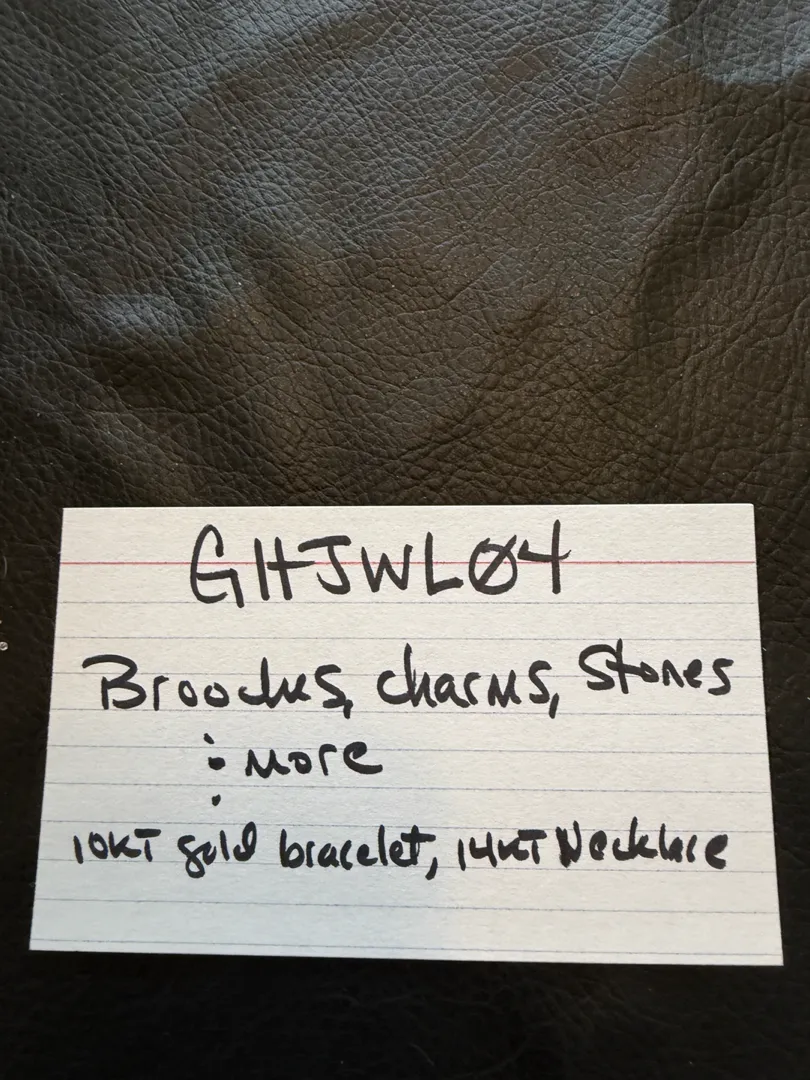 GHJWLØ4
Brooches, charms, stones
: more
10KT gold bracelet, 14KT Necklace